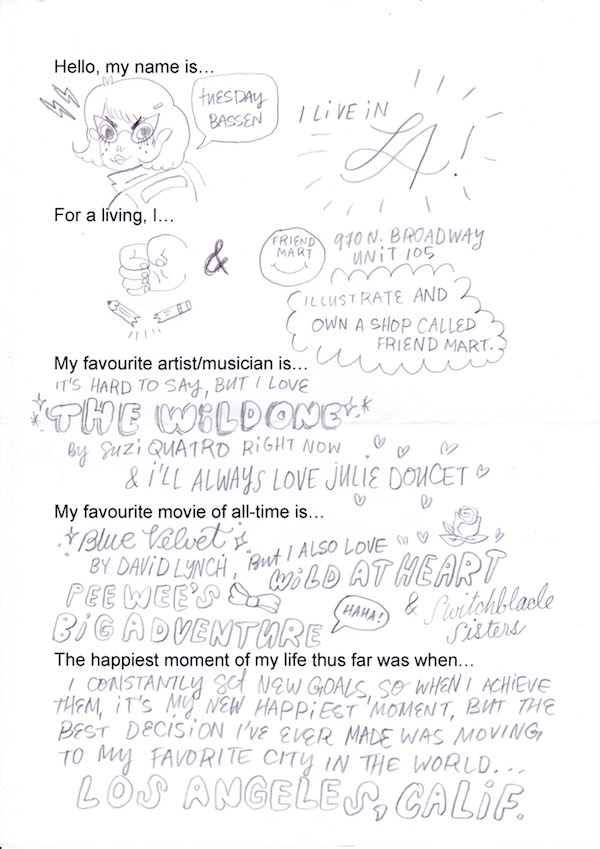 Hello, my name is...
TUESDAY
BASSEN
I LIVE IN
LA!
For a living, I...
FRIEND
MART
&
970 N. BROADWAY
UNIT 105
ILLUSTRATE AND
OWN A SHOP CALLED
FRIEND MART.
My favourite artist/musician is...
IT'S HARD TO SAY, BUT I LOVE
THE WILD ONE
BY SUZI QUATRO RIGHT NOW
& I'LL ALWAYS LOVE JULIE DOUCET
My favourite movie of all-time is...
Blue Velvet
BY DAVID LYNCH, BUT I ALSO LOVE
WILD AT HEART
PEE WEE'S
BIG ADVENTURE
HAHA!
& Switchblade
Sisters
The happiest moment of my life thus far was when...
I CONSTANTLY SET NEW GOALS, SO WHEN I ACHIEVE
THEM, IT'S MY NEW HAPPIEST MOMENT, BUT THE
BEST DECISION I'VE EVER MADE WAS MOVING
TO MY FAVORITE CITY IN THE WORLD...
LOS ANGELES, CALIF.